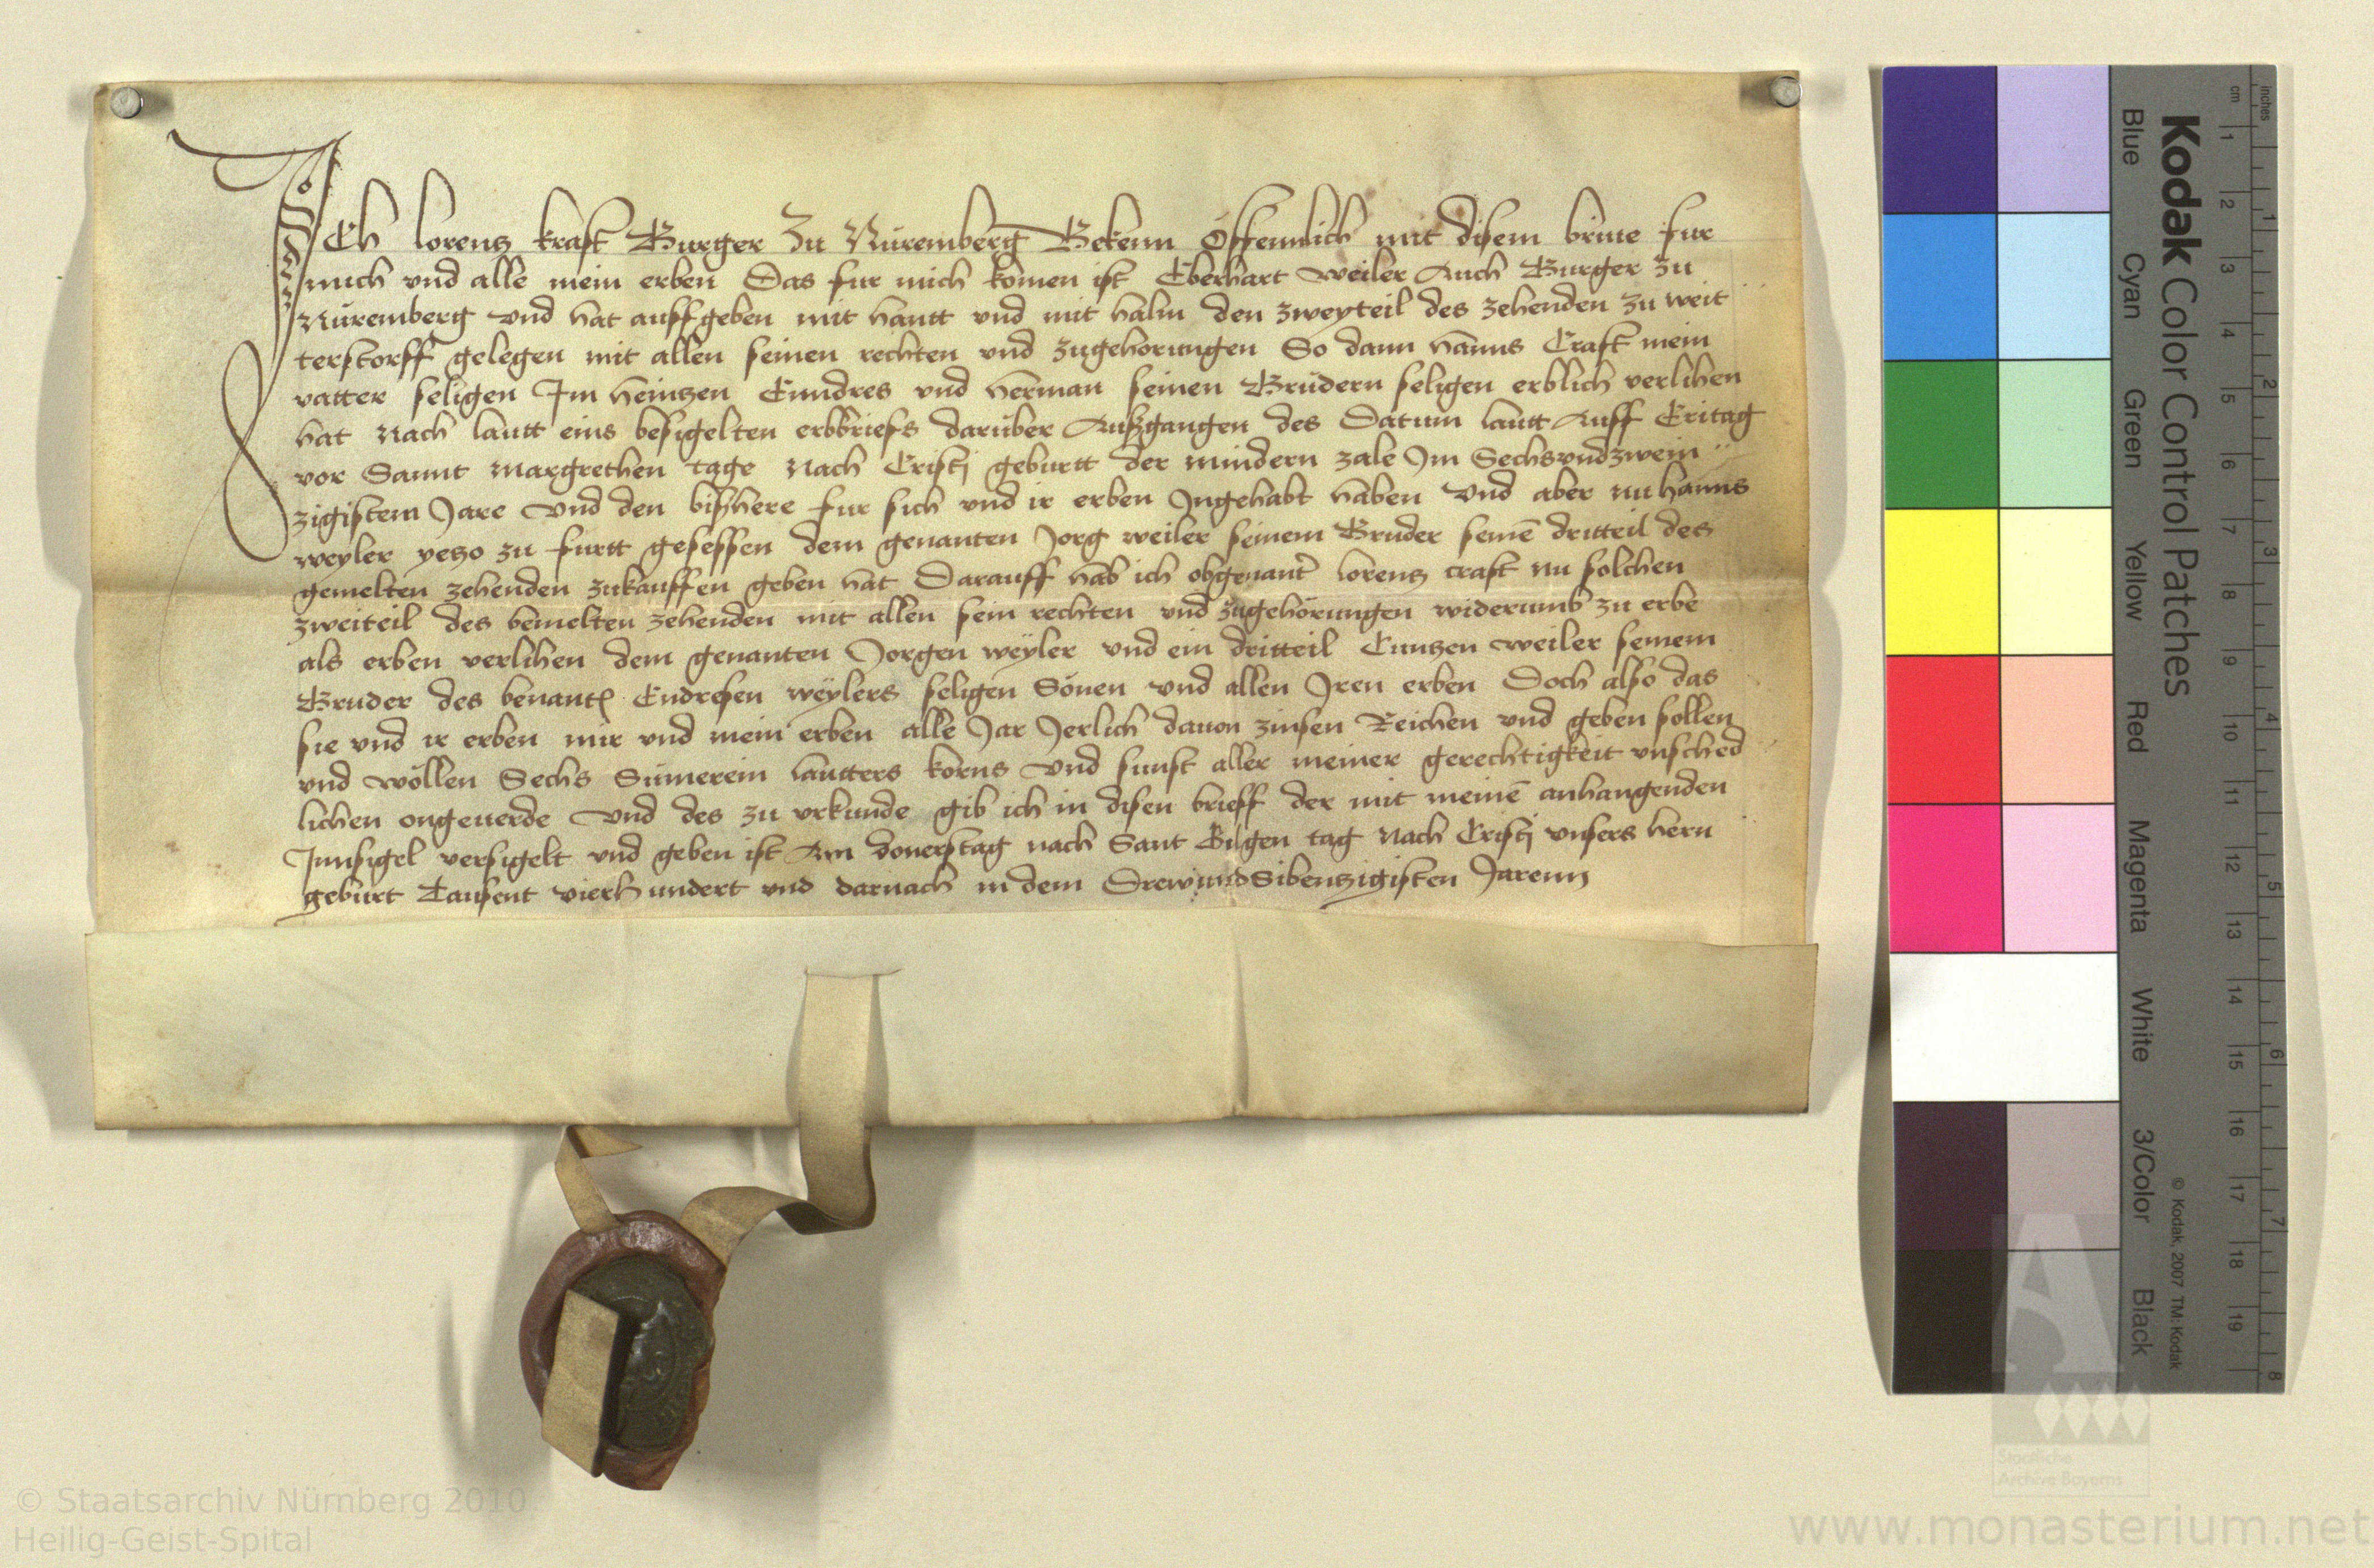 ICh lorentz kraft Burger Zu Nüremberg Bekenn Offennlich mit disem briue fur
mich vnd alle mein erben Das fur mich komen ist Eberhart weiler Auch Burger zu
Nüremberg vnd hat auffgeben mit hantt vnd mit halm den zweyteil des zehenden zu weit
terstorff gelegen mit allen seinen rechten vnd zugehorungen So dann hanns Craft mein
vatter seligen Im heintzen Enndres vnd herman seinen Brüdern seligen erblich verlihen
hat Nach lautt eins besigelten erbbriefs darüber Außgangen des Datum lautt Auff Eritag
vor Sannt Margrethen tage Nach Cristj geburtt der mindern zale Im Sechsvndzwein
zigistem Jare vnd den bißhere fur sich vnd ir erben Jngehabt haben vnd aber nu hanns
weyler yetzo zu furtt gesessen dem genanten Jorg weiler seinem Bruder seinē dritteil des
gemelten zehenden zukauffen geben hat Darauff hab ich obgenant lorentz craft nu solchen
zweiteil des bemelten zehenden mit allen sein rechten vnd zugehörungen widerumb zu erbe
als erben verlihen dem genanten Jorgen weyler vnd ein dritteil Cuntzen weiler seinem
Bruder des benantē Endresen weylers seligen Sönen vnd allen Jren erben Doch also das
sie vnd ir erben mir vnd mein erben alle Jar Jerlich dauon zinsen Reichen vnd geben sollen
vnd wöllen Sechs Sümerein lautters korns vnd sunst aller meiner gerechtigkeit vnsched
lichen ongeuerde vnd des zu vrkunde gib ich in disen brieff der mit meinē anhangenden
Jnnsigel versigelt vnd geben ist Am donerstag nach Sant Gilgen tag Nach Cristj vnsers hern
geburt Tausent vierhundert vnd darnach in dem DrewundSibentzigisten Jarenn
Kodak Color Control Patches
© Kodak, 2007 TM: Kodak
Blue Cyan Green Yellow Red Magenta White 3/Color Black
cm 1 2 3 4 5 6 7 8 9 10 11 12 13 14 15 16 17 18 19
inches 1 2 3 4 5 6 7 8
Staatliche
Archive Bayerns
© Staatsarchiv Nürnberg 2010
Heilig-Geist-Spital
www.monasterium.net